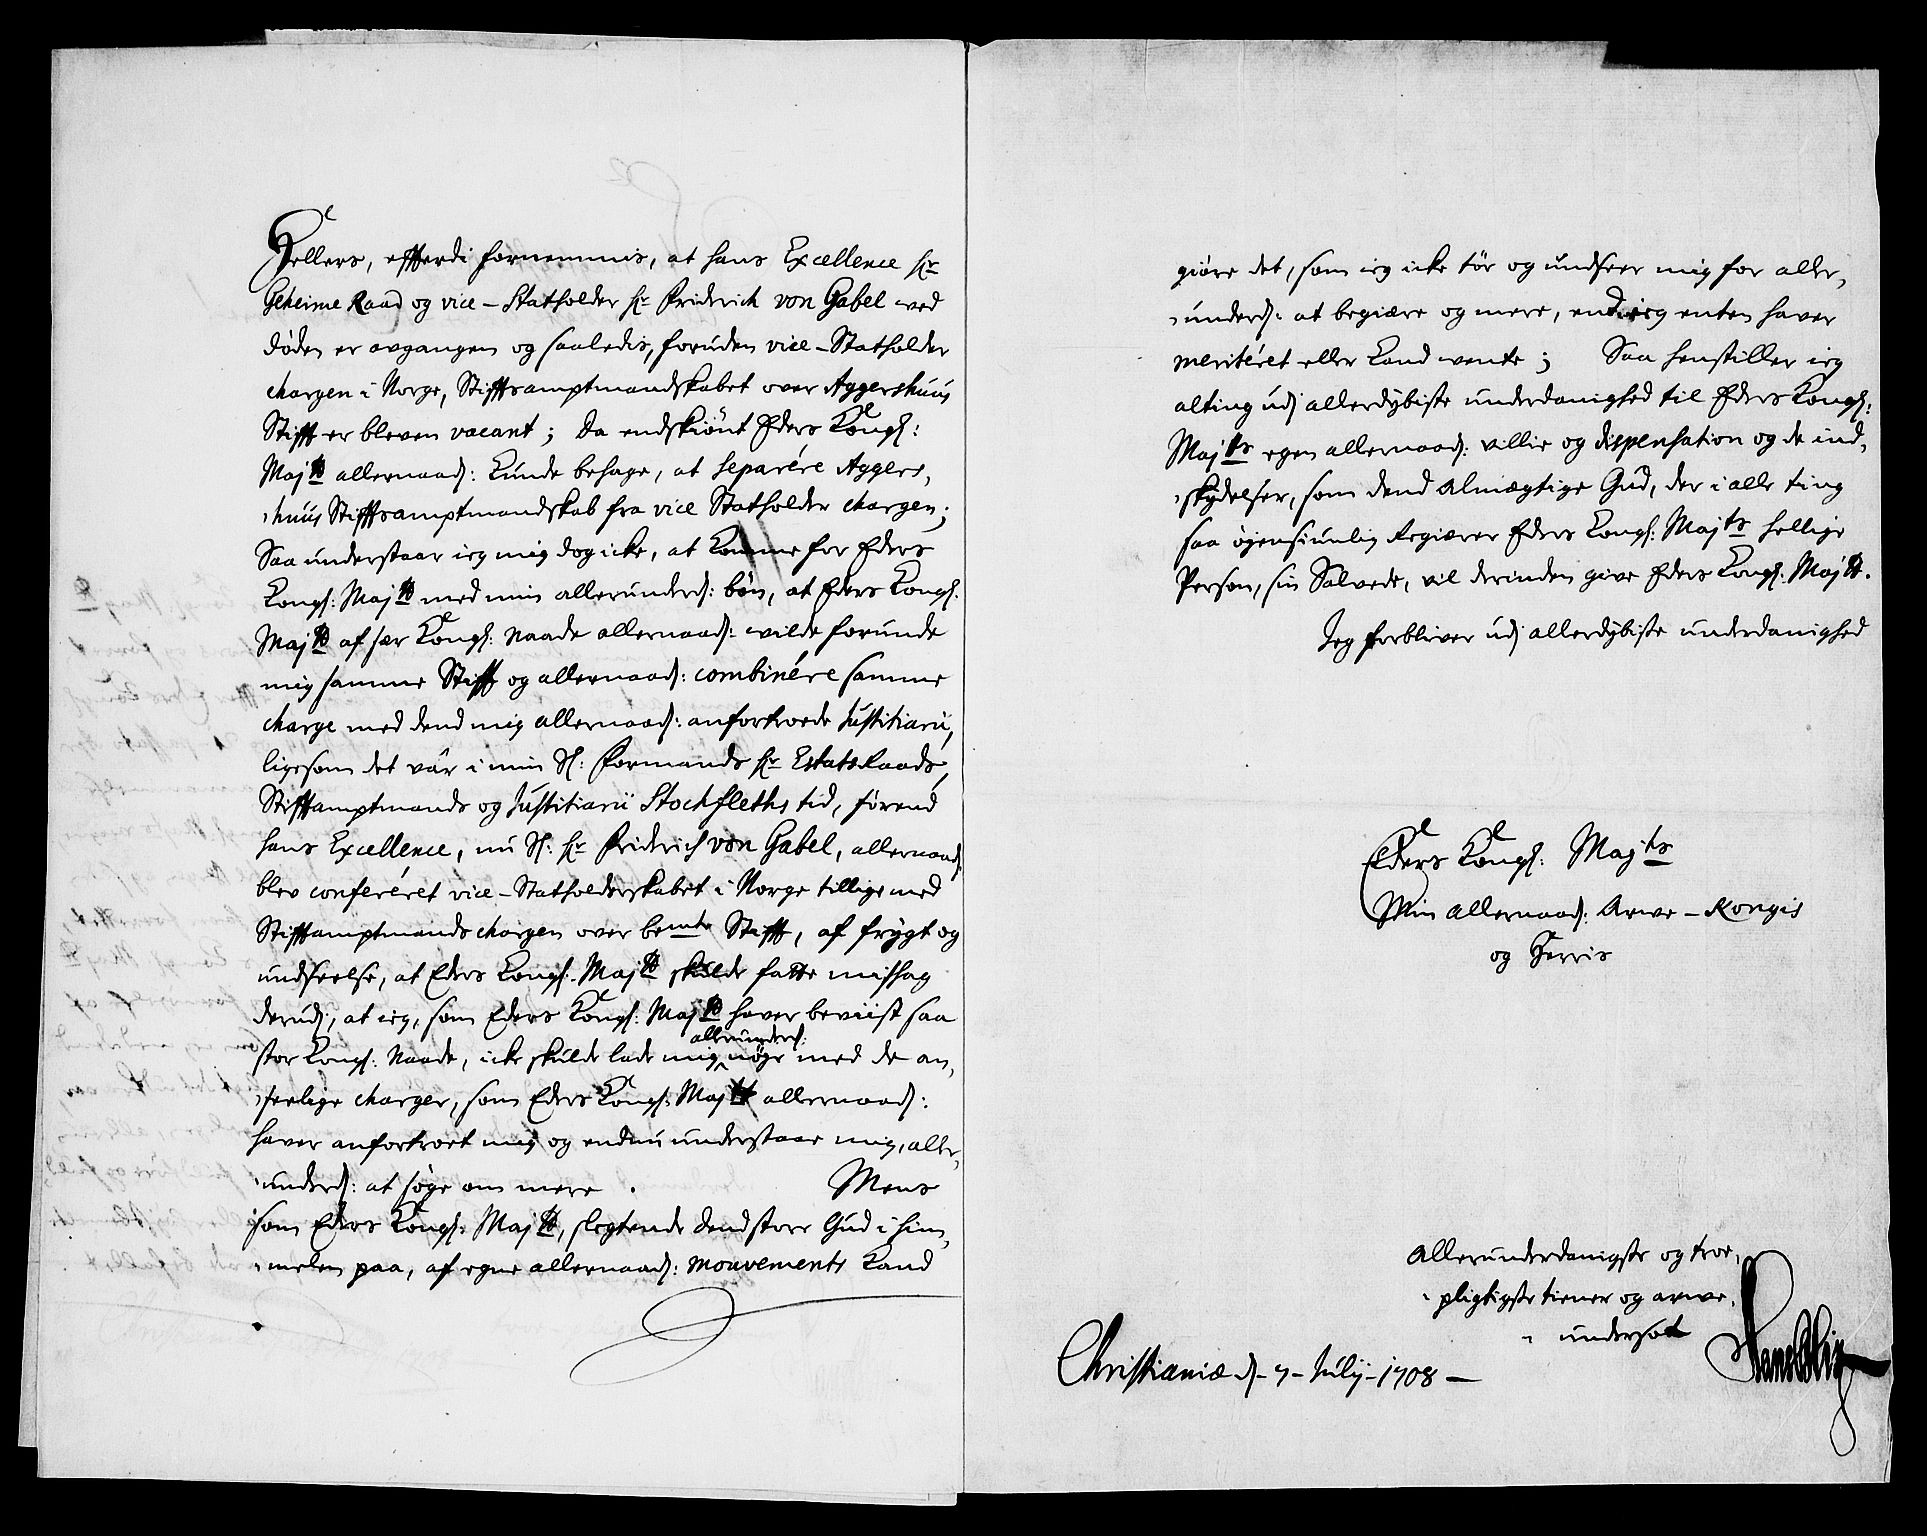 Hellers, efterdi fornemmis, at hans Excellence Hr
Geheime Raad og vice-Statholder Hr Friderich von Gabel ved
døden er avgangen og saaledis, foruden vice-Statholder
chargen i Norge, Stifftsamptmandskabet over Aggershuus
Stifft er bleven vacant; Da endskiönt Eders Kongl:
Majtt allernaadl: kunde behage, at separére Aggers,
huus Stifftsamptmandskab fra vice Statholder chargen;
Saa understaar ieg mig dog icke, at komme for Eders
Kongl: Majtt med min allerunderd: bøn, at Eders Kongl:
Majtt af sær Kongl: Naade allernaadl: wilde forunde
mig samme Stifft og allernaadl: combinére samme
charge med dend mig allernaadl: anfortroede Justitiarii,
ligesom det vár i min Sl: Formands Hr Estats Raads,
Stifftamptmands og Justitiarii Stockfleths tid, førend
hans Excellence, nu Sl: Hr Friderich von Gabel, allernaadl
blev conferéret vice-Statholderskabet i Norge tillige med
Stifftamptmands chargen over bemte Stifft, af frygt og
undseelse, at Eders Kongl: Majtt skulde fatte mishag
derudj, at ieg, som Eders Kongl: Majtt haver beviist saa
stor Kongl: Naade, icke skulde lade mig allerunderd: nöye med de an,
seelige charger, som Eders Kongl: Majtt allernaadl:
haver anfortroet mig og endnu understaar mig, aller,
underd: at søge om mere. Mens
som Eders Kongl: Majtt, slegtende dend store Gud i him,
melen paa, af egne allernaadl: mouvements kand
giöre det, som ieg icke tör og undseer mig for aller,
underd: at begiære og mere, end ieg enten haver
meritéret eller kand vente; Saa henstiller ieg
alting udj allerdybiste underdanighed til Eders Kongl:
Majts egen allernaadl: villie og dispensation og de ind,
skydelser, som dend Almægtige Gud, der i alle ting
saa øyensiunlig regiærer Eders Kongl: Majts hellige
Person, sin Salvede, vil derinden give Eders Kongl: Majtt.
Jeg forbliver udj allerdybiste underdanighed
Eders Kongl: Majts
Min Allernaadl: Arve-Kongis
og Herris
Allerunderdanigste og troe,
pligtigste tiener og arve,
undersot
Christianiæ d- 7- Julij- 1708-